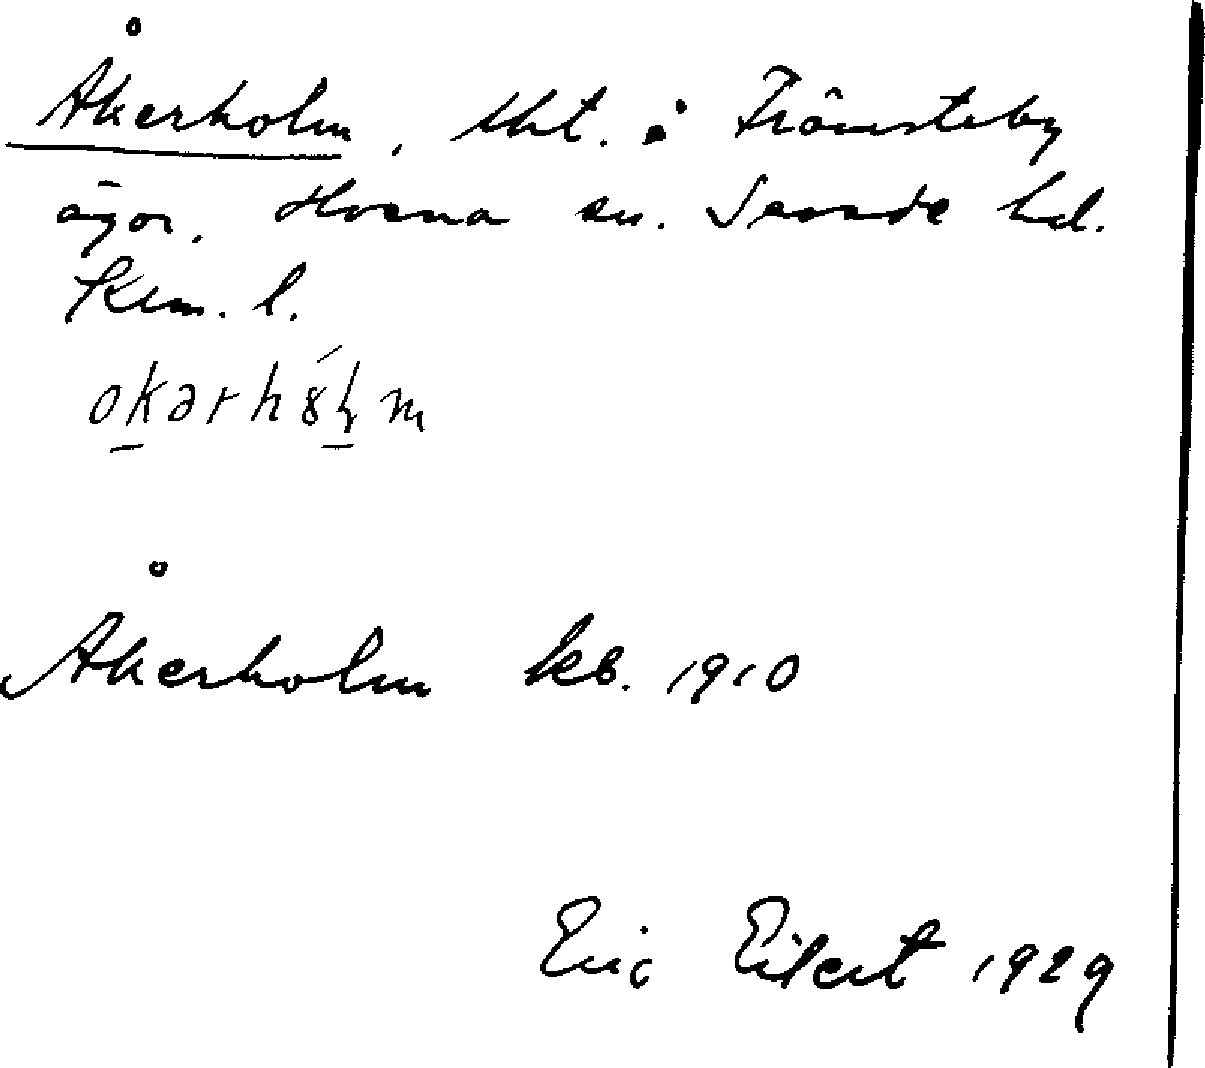 Åkerholm, tht. i Frömsteby
ägor, Hvena sn. Sevede hd.
Klm. l.
Åkerholm kb. 1910
Eric Eilert 1929